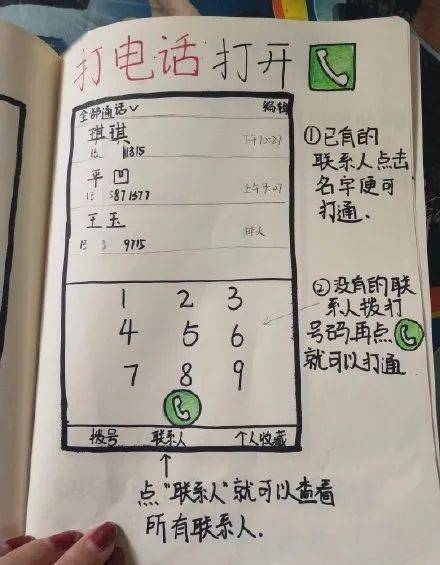 打电话打开
全部通话 编辑
琪琪 下午10:21
11315
平凹 上午9:07
5871377
王玉 昨天
9715
1 2 3
4 5 6
7 8 9
拨号 联系人 个人收藏
①已有的
联系人点击
名字便可
打通.
②没有的联
系人拨打
号码再点
就可以打通
点“联系人”就可以查看
所有联系人.